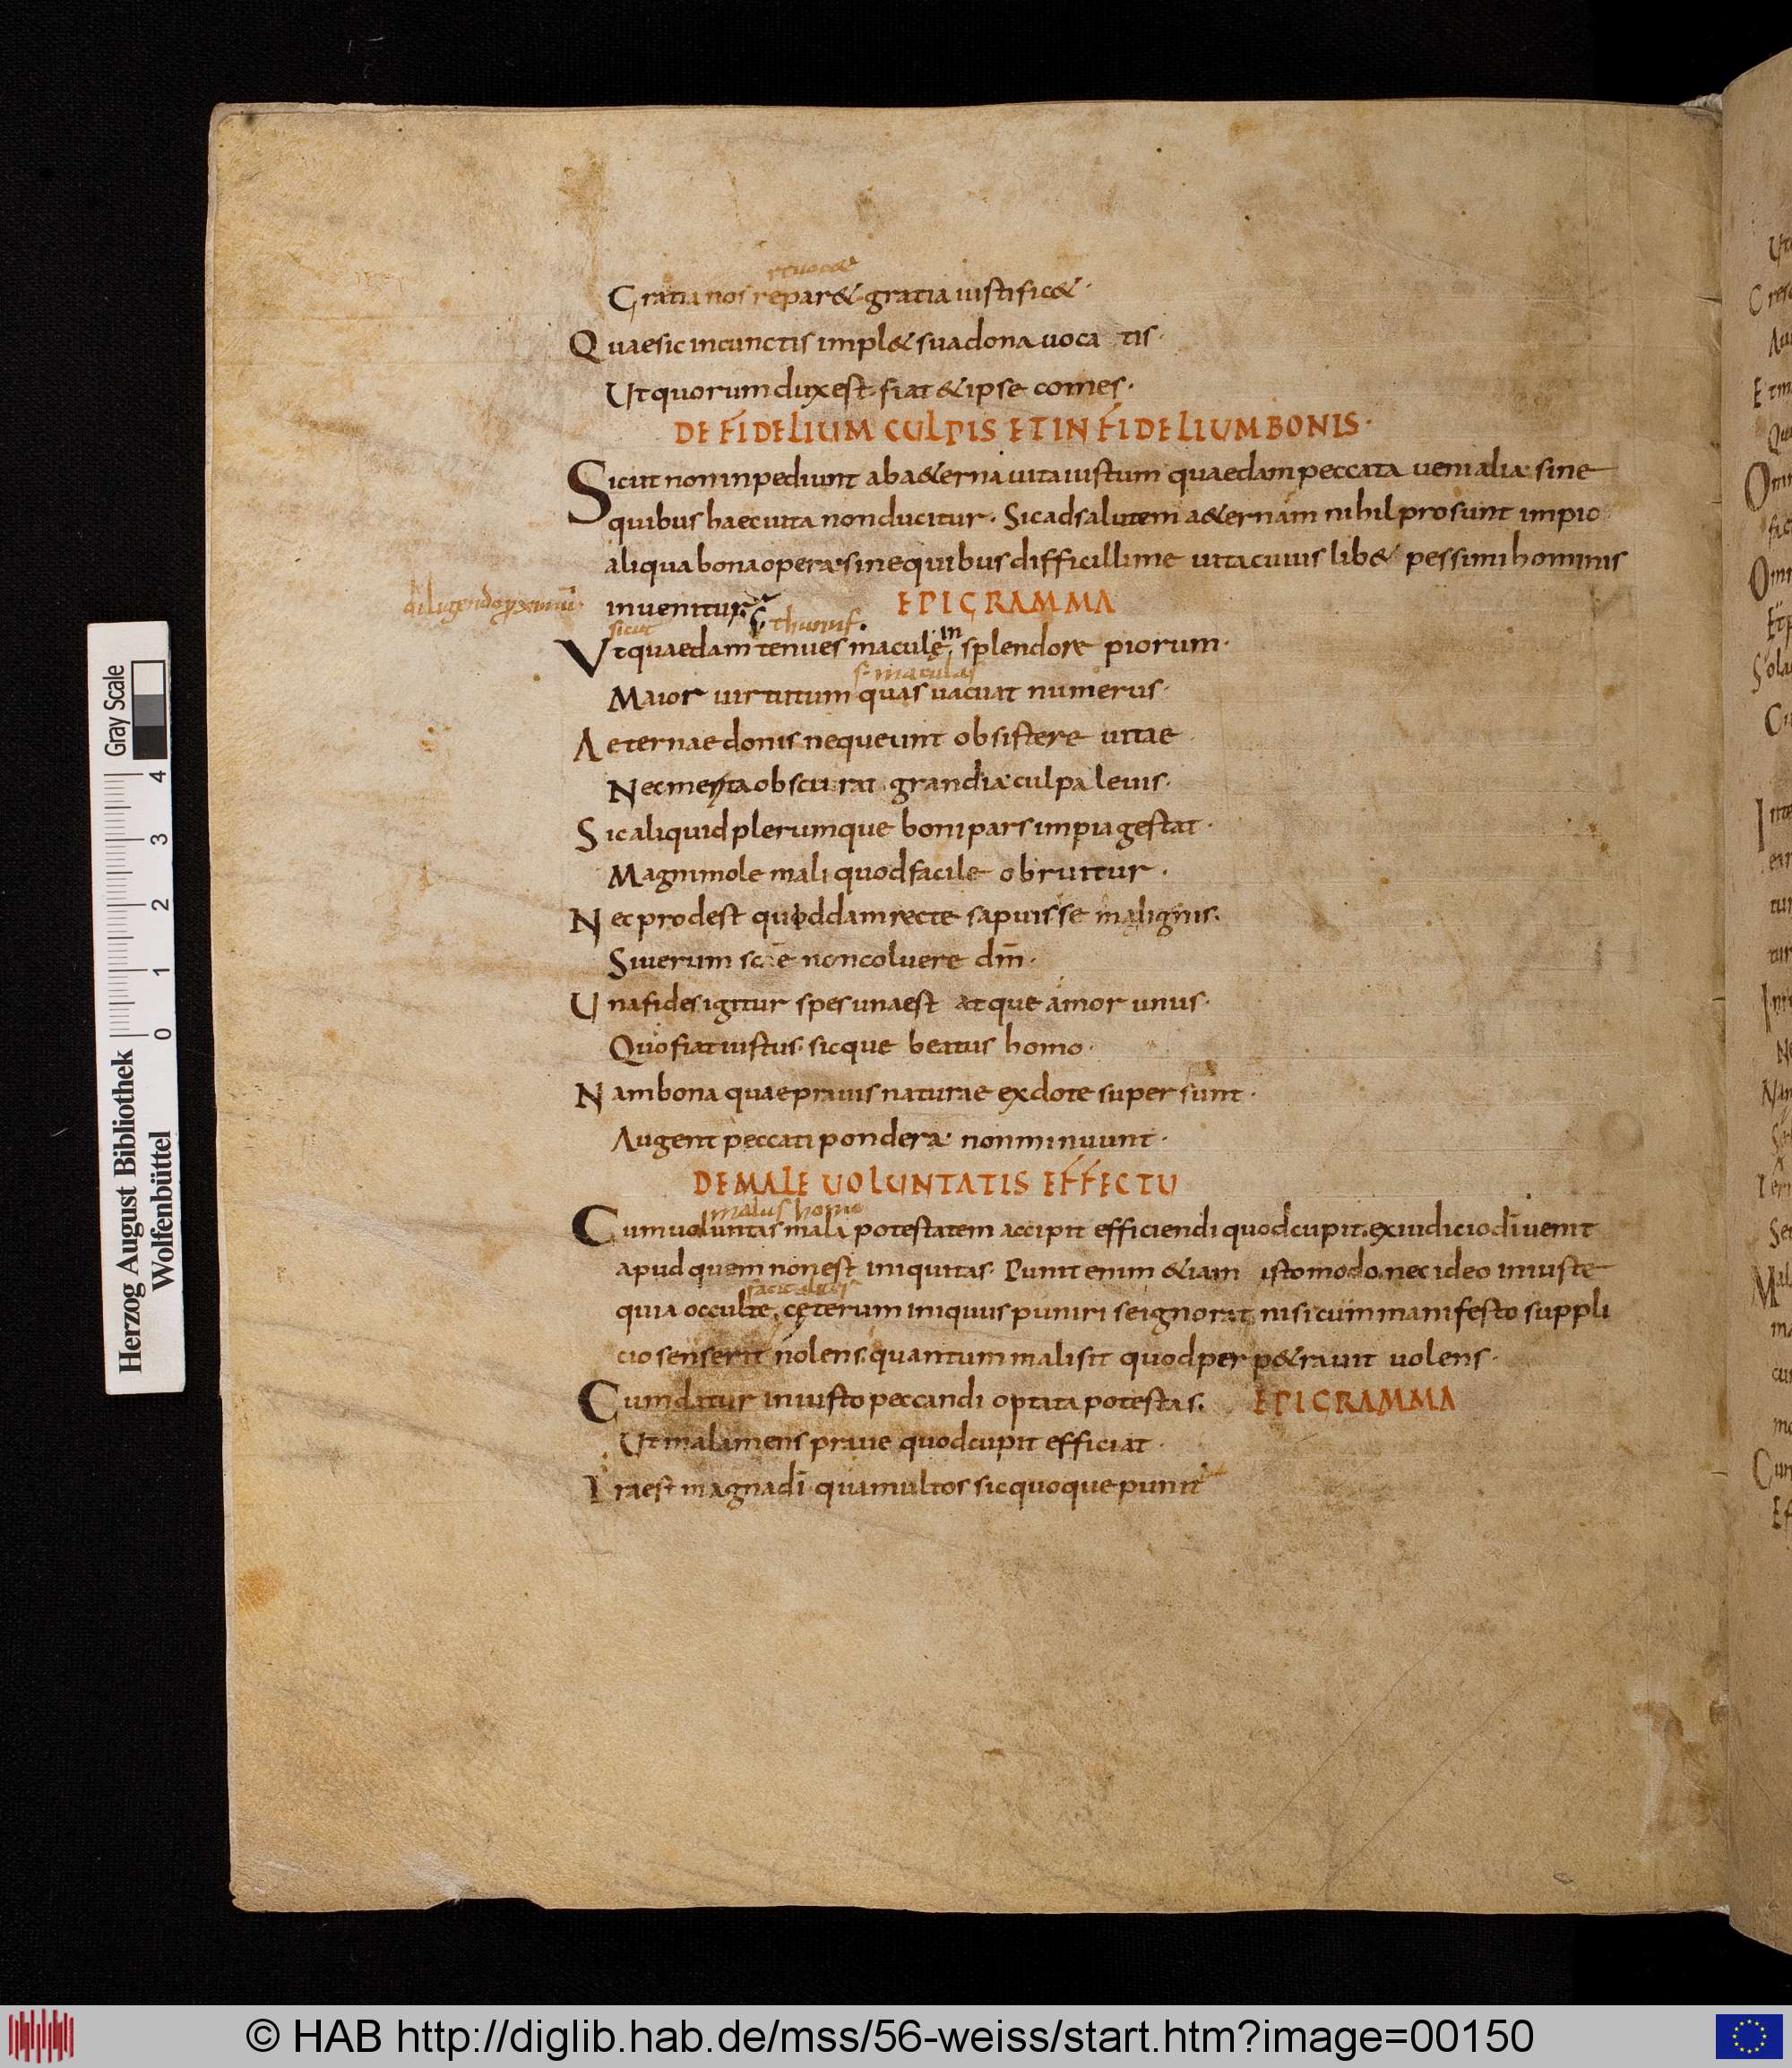 reuocat
Gratia nos repar& gratia iustific&·
Quae sic in cunctis impl& sua dona uoca tis·
Ut quorum dux est· fiat & ipse comes·
DE FIDELIUM CULPIS ET INFIDELIUM BONIS·
Sicut non inpediunt ab a&erna uita iustum quaedam peccata uenialia sine
quibus haec uita non ducitur· Sic ad salutem a&ernam nihil prosunt impio
aliqua bona opera· sine quibus difficillime uita cuius lib& pessimi hominis
inuenitur· EPIGRAMMA
sicut
Ut quaedam tenues maculę in splendore piorum·
s· maculas
Maior uirtutum quas uacuat numerus·
Aeternae donis nequeunt obsistere uitae
Nec merita obscurat grandia culpa leuis·
Sic aliquid plerumque boni pars impia gestat·
Magni mole mali quod facile obruitur·
Nec prodest quoddam recte sapuisse malignis·
Si uerum sc e non coluere dm̄·
Una fides igitur spes una est atque amor unus·
Quo fiat iustus· sicque beatus homo·
Nam bona quae prauis naturae ex dote supersunt·
Augent peccati pondera· non minuunt·
DE MALE UOLUNTATIS EFFECTU
malus homo
Cum uoluntas mala potestatem accipit efficiendi quod cupit· ex iudicio dī uenit
apud quem non est iniquitas· Punit enim &iam isto modo· nec ideo iniuste
quia occulte· cęterum iniquus puniri se ignorat nisi cum manifesto suppli
cio senserit nolens· quantum mali sit quod perp&rauit uolens·
Cum datur iniusto peccandi optata potestas· EPIGRAMMA
Ut mala mens praue quod cupit efficiat·
Ira est magna dī quam multos sic quoque punit
Gray Scale
4
3
2
1
0
Herzog August Bibliothek
Wolfenbüttel
© HAB http://diglib.hab.de/mss/56-weiss/start.htm?image=00150